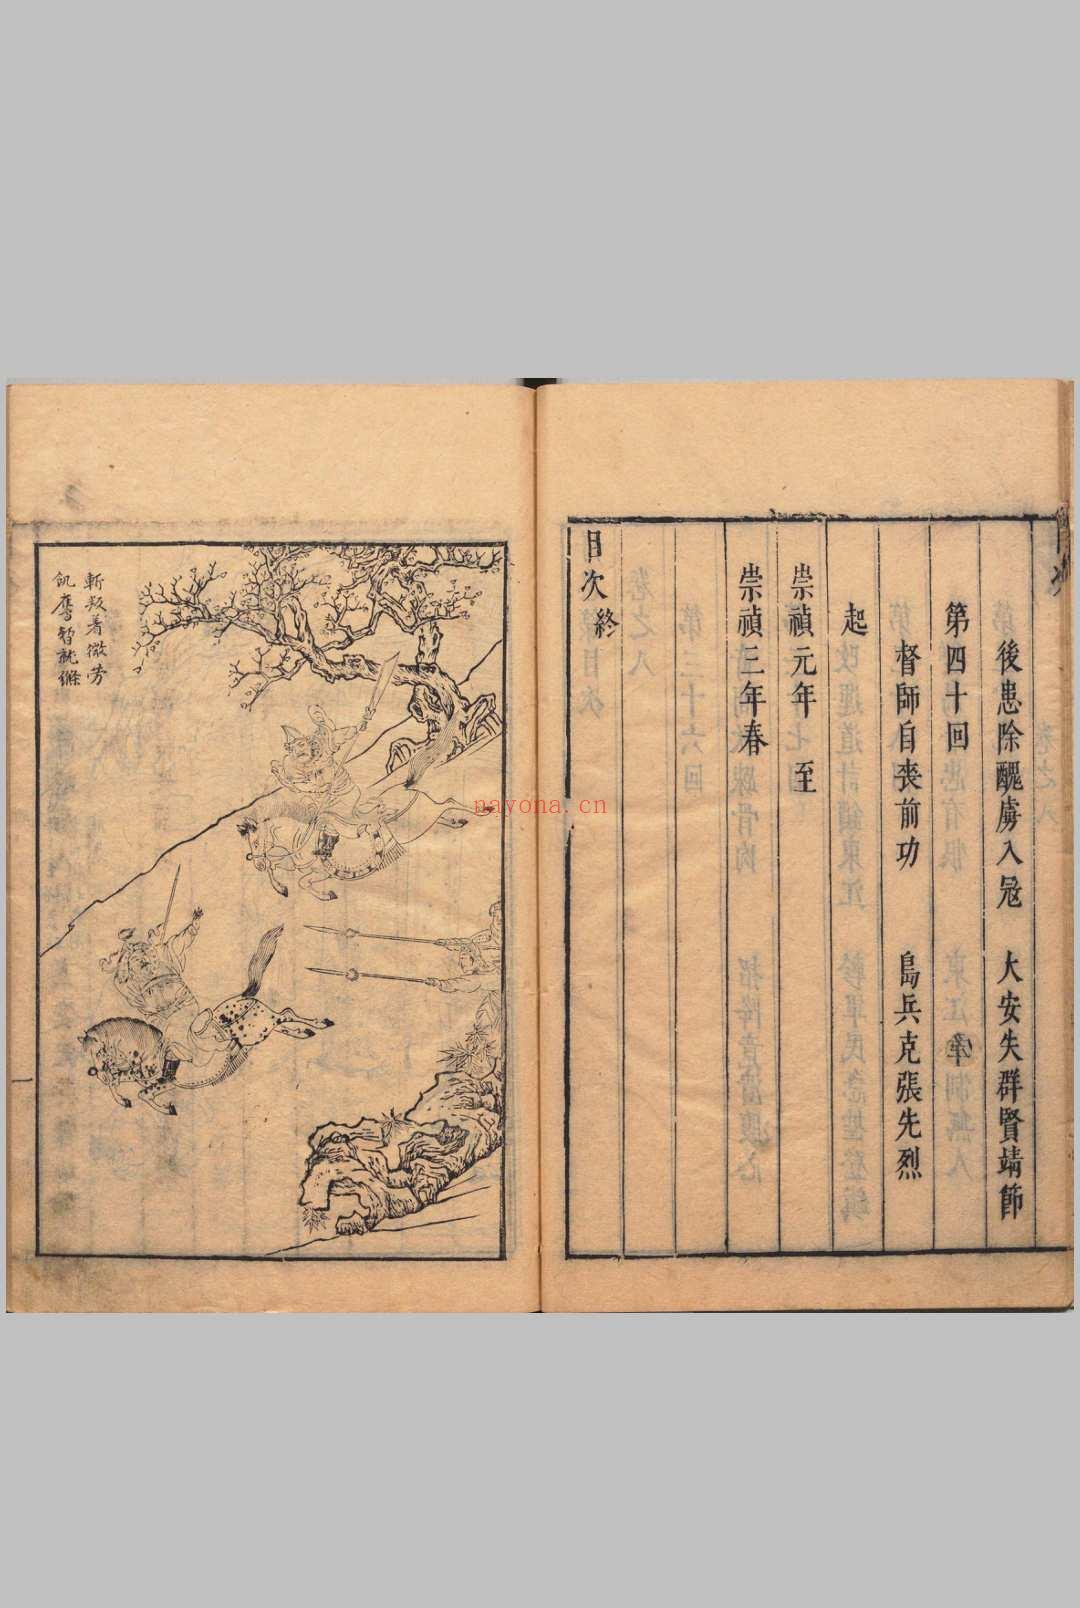 後患除醜虜入冦　大安失群賢靖節
第四十回
督師自喪前功　島兵克張先烈
起
崇禎元年　至
崇禎三年春
目次終
斬叛着微劳
飢鷹暫就縧
一
nayona.cn